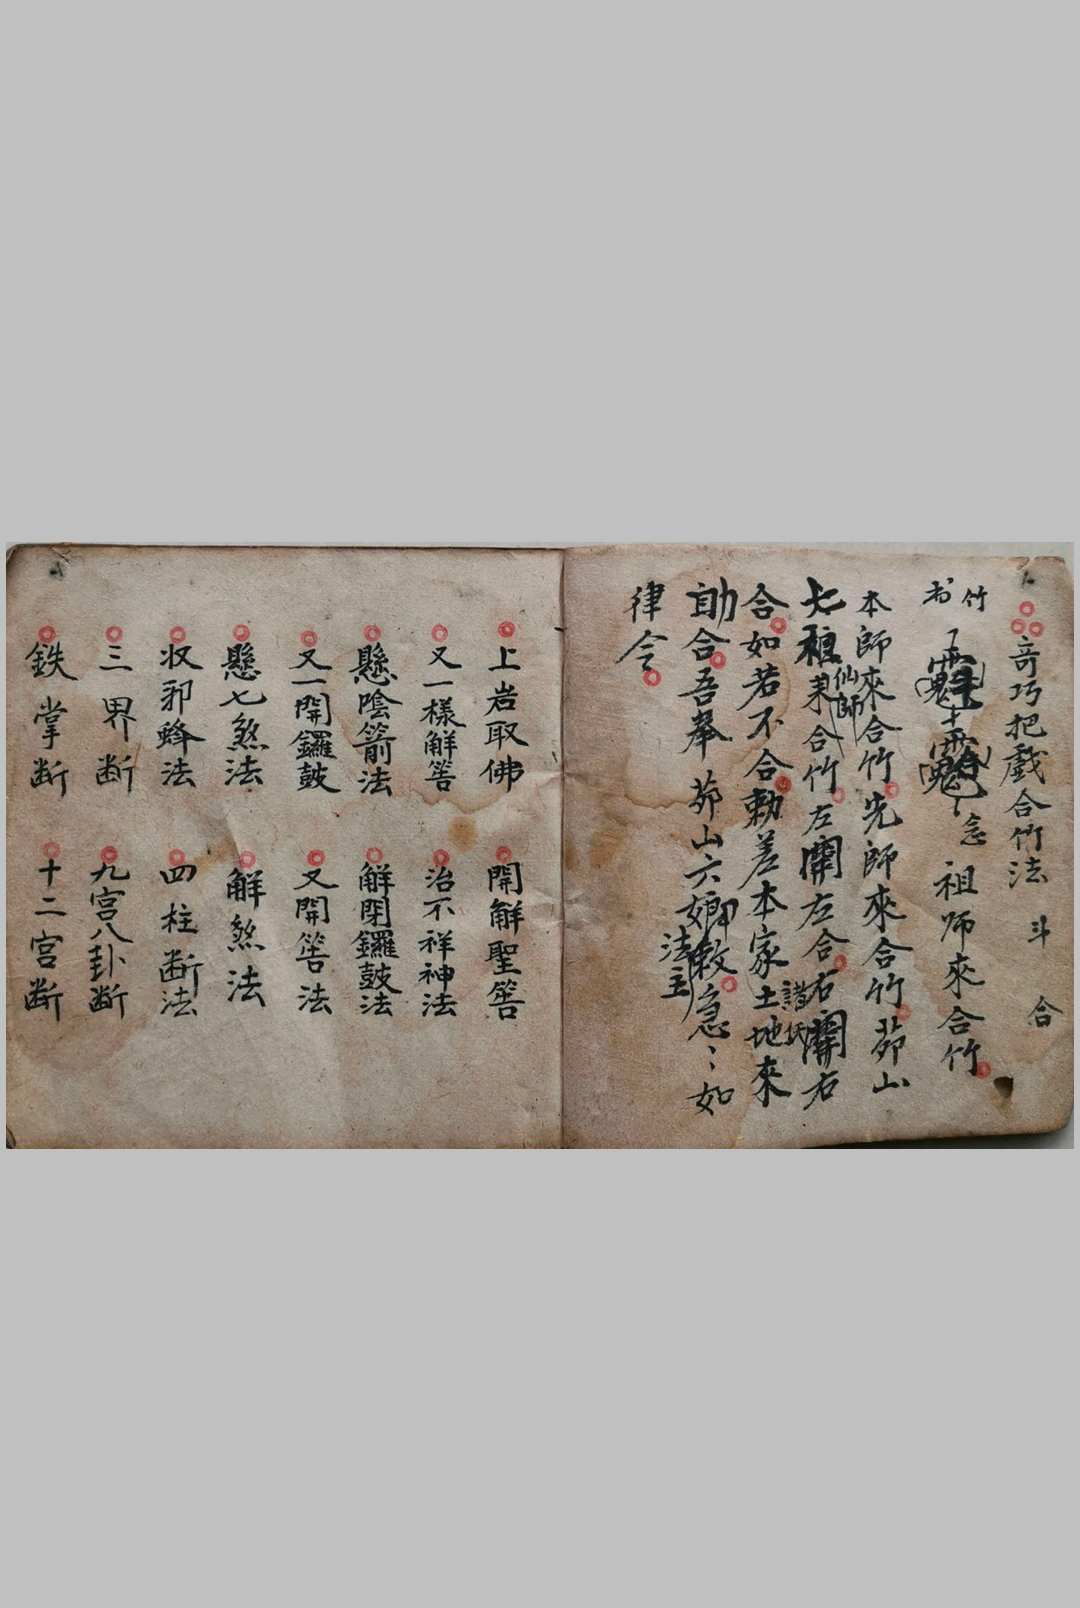 奇巧把戲合竹法 斗 合
竹
书
念 祖师來合竹
本師來合竹先師來合竹茆山
七祖來合竹左開左合右開右
仙師
合如若不合勅差本家土地來
諸氏
助合吾奉茆山六娘敕急〻如
法主
律令
上岩取佛 開解聖筶
又一樣解筶 治不祥神法
懸陰箭法 解閉鑼鼓法
又一開鑼鼓 又開筶法
懸七煞法 解煞法
収邪蜂法 四柱断法
三界断 九宫八卦断
鉄掌断 十二宫断